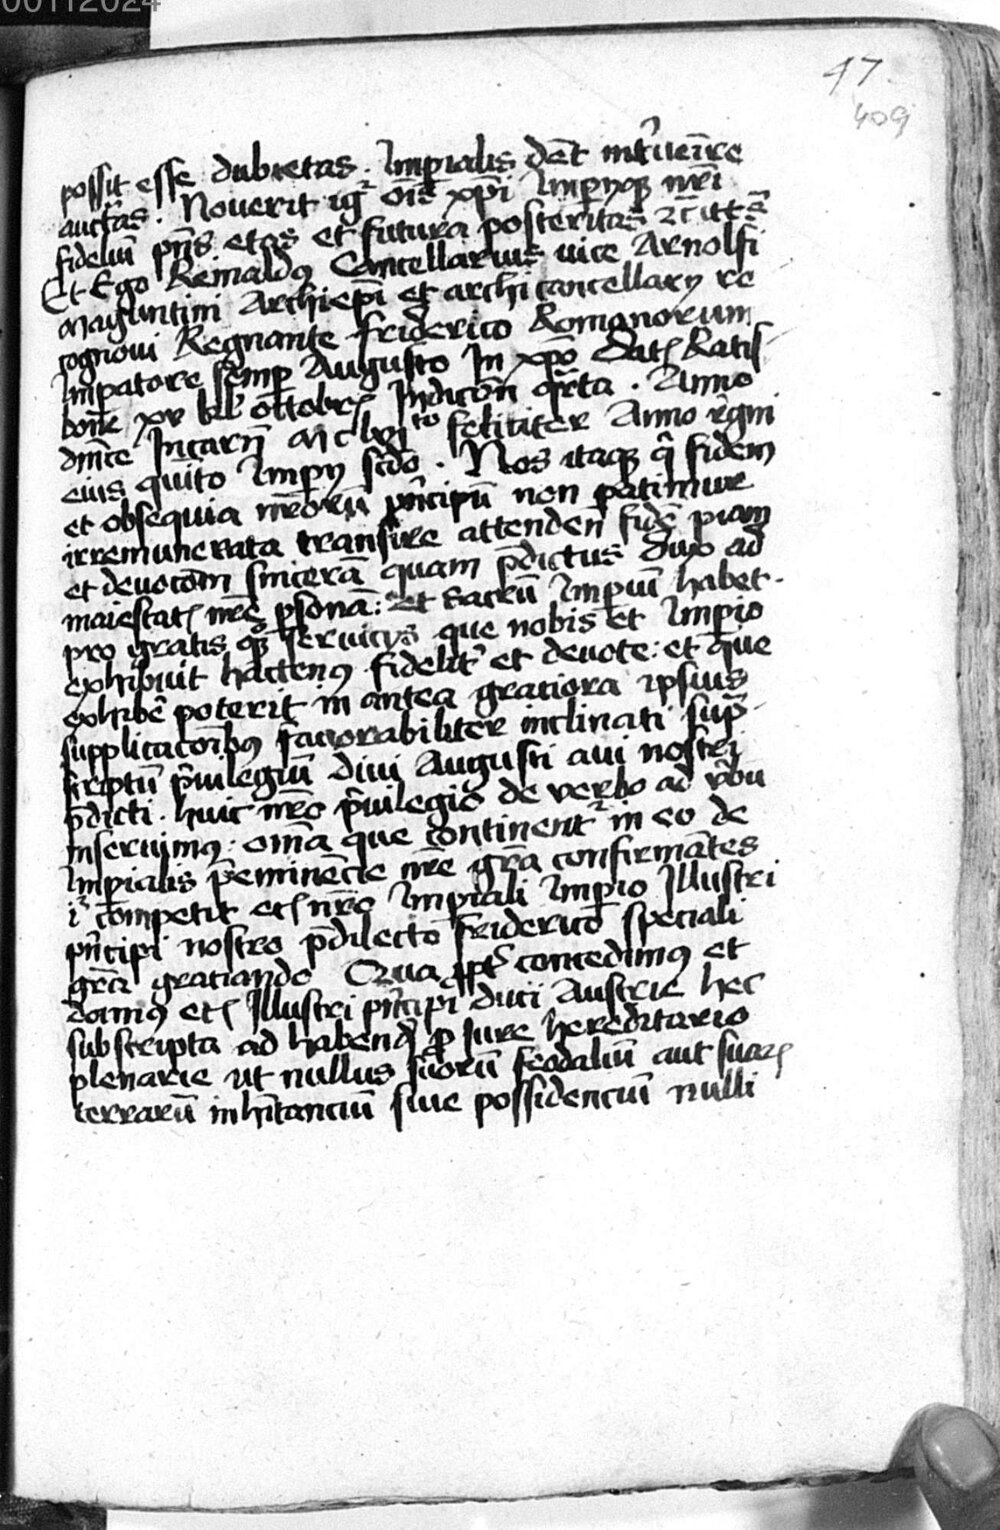 00112024
47
409
possit esse dubietas. Imp̄ialis det īt̄ueīre
auct̄as. Nouerit ig̃ oīs xp̄i Imp̄ijq̨ nr̄i
fideliū p̄ns etas et futura posteritas
Et Ego Reinaldꝰ Cancellarius uice Arnolfi
Maguntini Archiep̄i et archicancellarij re
cognoui Regnante friderico Romanorum
Imp̄atore semp̄ Augusto In xp̄o Datꝭ Ratis
bone xv kl̄ octobrꝭ Indicōn q̄rta. Anno
dm̄ce Incarn̄ Mc lvjto feliciter Anno r̄gni
eius quīto Imp̄ij sc̄do. Nos itaq̨ q̄ fidem
et obsequia nr̄orū pn̄cipū non patimur
irremunerata transire attenden̄ fidē piam
et deuotōm sincerā quam p̄dictus dux ad
maiestatꝭ nr̄ę p̄sonā: Et sacrū Imp̄iuī habet.
pro gratis q̨ꝫ seruicijs que nobis et Imp̄io
exhibuit hactenꝰ fidelit̄ et deuote: et que
exhibē poterit in antea graciora ipsius
supplicacōibꝰ fauorabiliter inclinati sup̄
scriptū p̄uilegiū diui Augusti aui nostri
p̄dicti. huic nr̄o p̄uilegio de verbo ad v̄bū
inseruimꝰ: om̄a que continent̄ in eo de
Imp̄ialis p̄eminēcie nr̄e gr̄a confirmātes
competit etꝭ nr̄o Imp̄iali Imp̄io Illustri
pn̄cipi nostro p̄dilecto friderico speciali
gr̄a graciando Qua ꝓpt̄ concedimꝰ et
damꝰ etꝭ Illustri pn̄cipi duci Austrie hec
subscripta ad habend̄ ꝓ Iure hereditario
plenarie ut nullus suorū feodaliū aut suaꝝ
terrarū inhītanciū siue possidenciū nulli